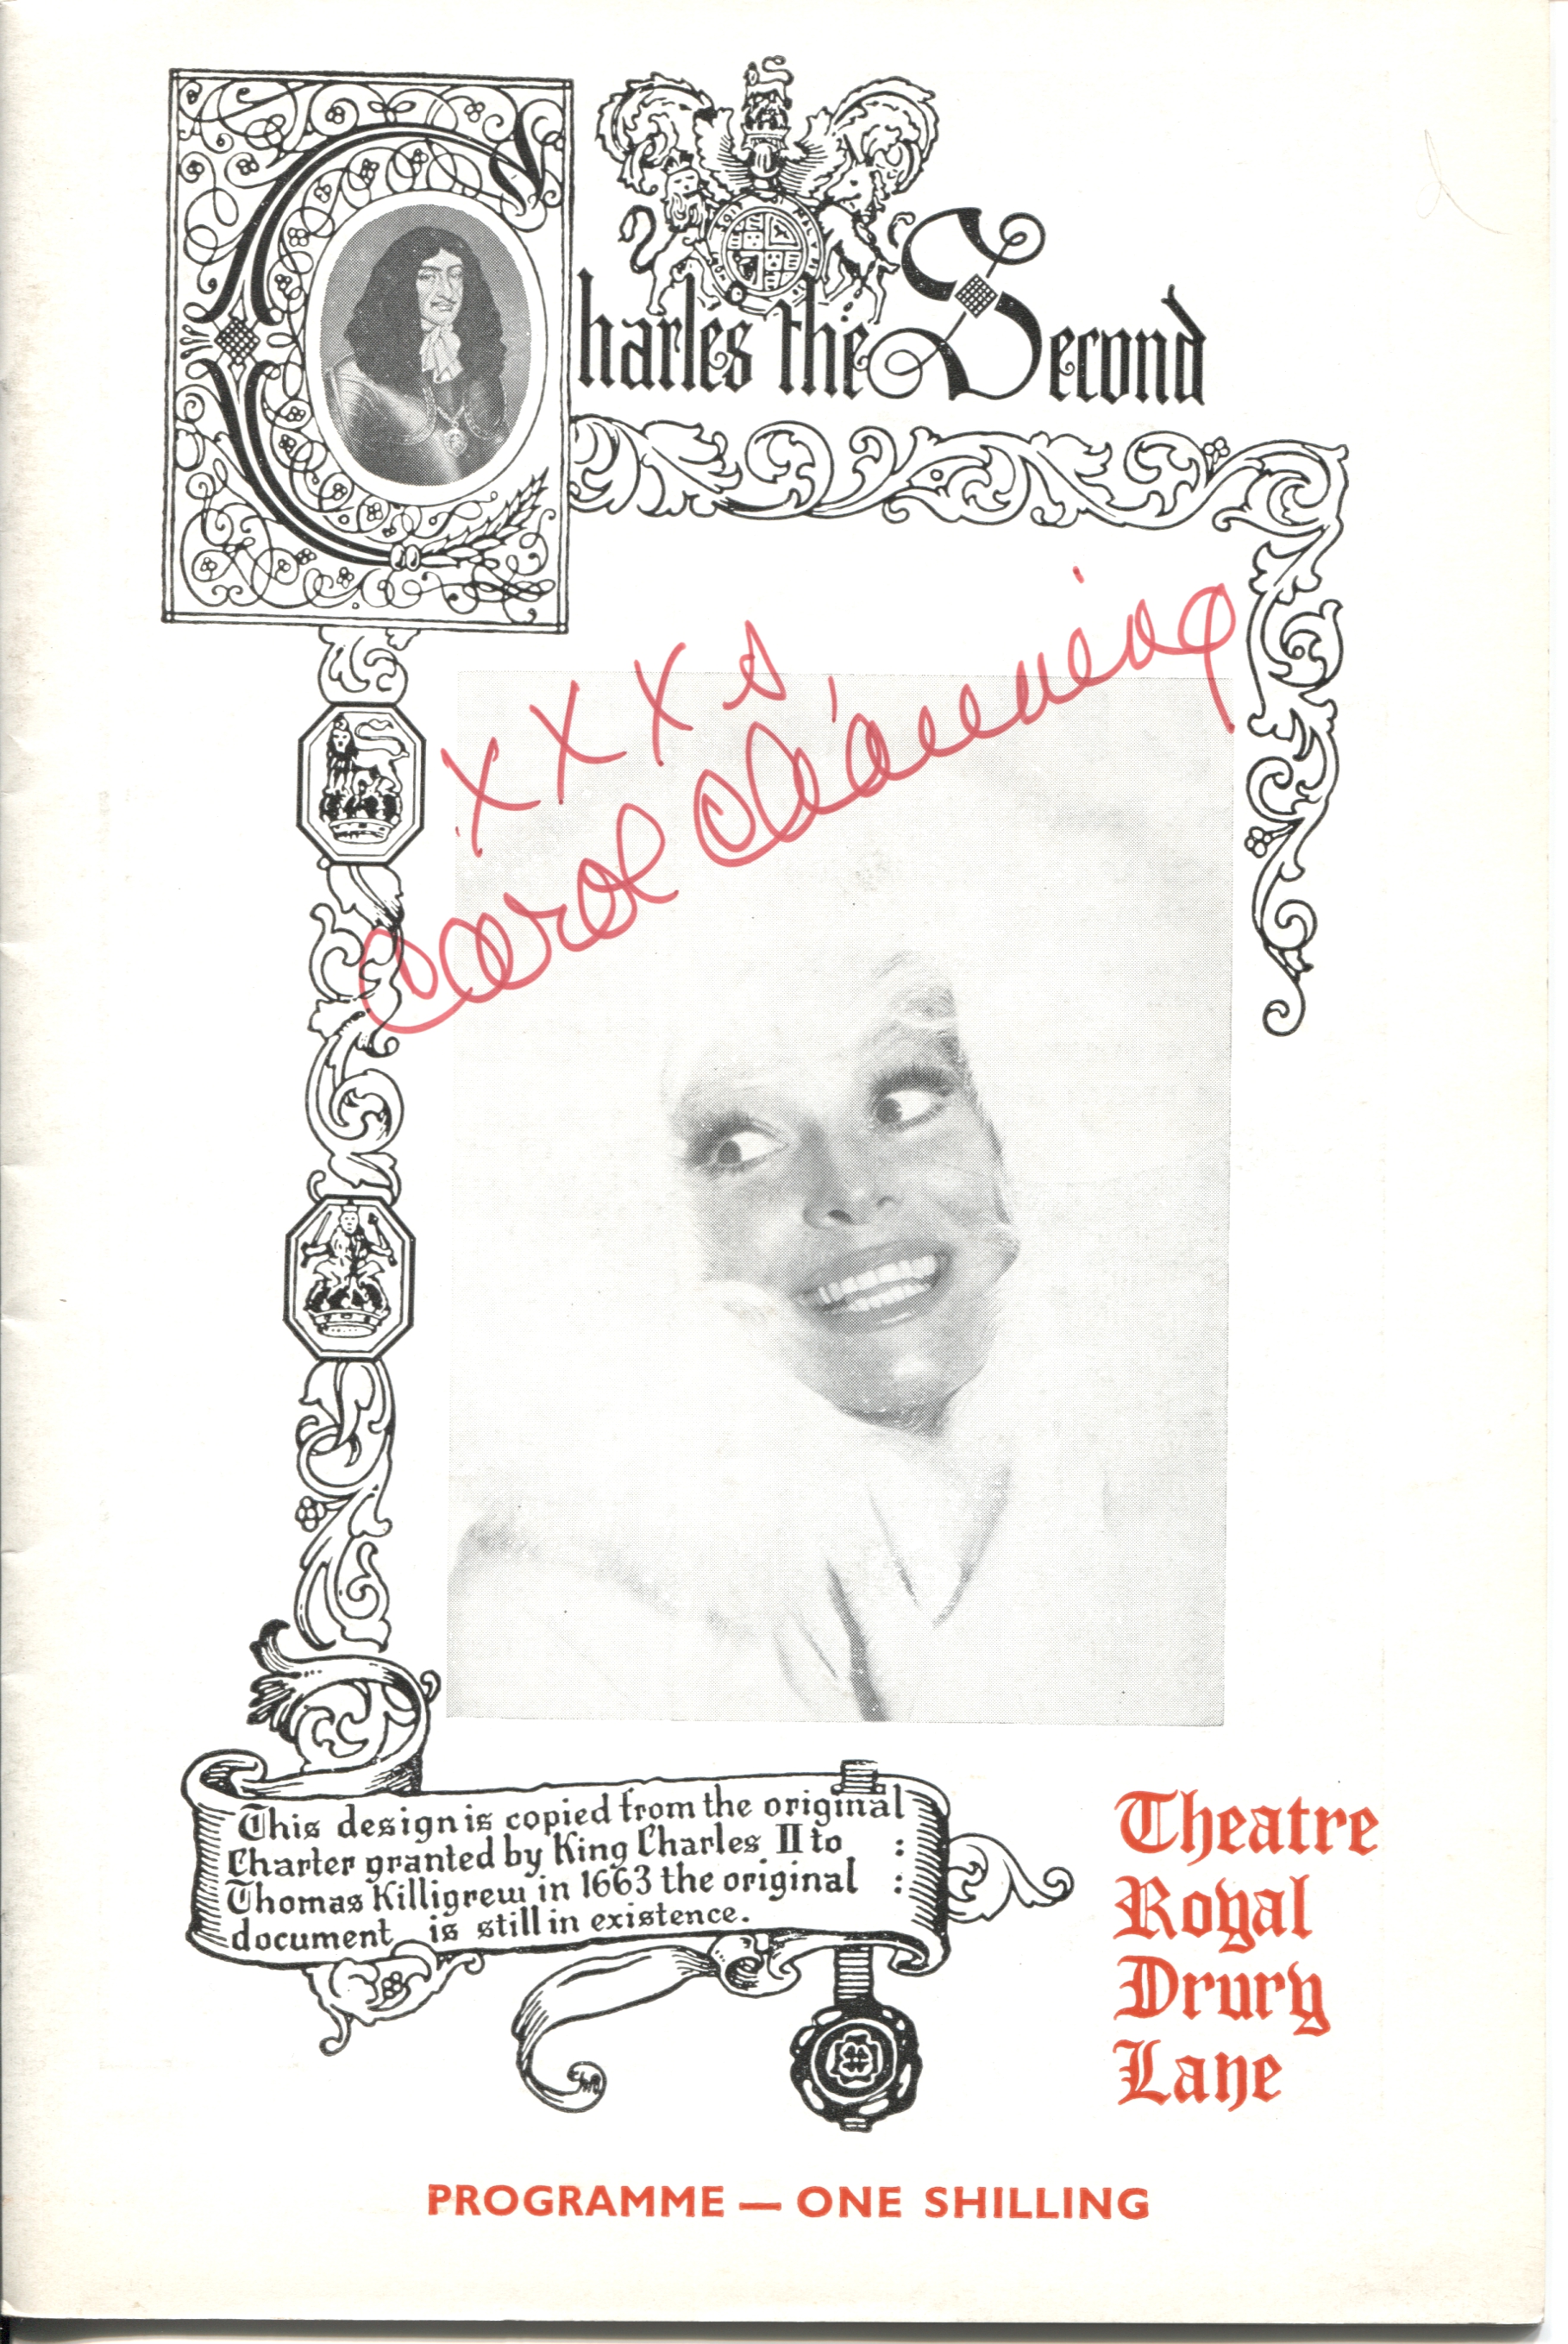 Charles the Second
xxxs
Carol Channing
This design is copied from the original
Charter granted by King Charles II to :
Thomas Killigrew in 1663 the original :
document is still in existence.
Theatre
Royal
Drury
Lane
PROGRAMME — ONE SHILLING